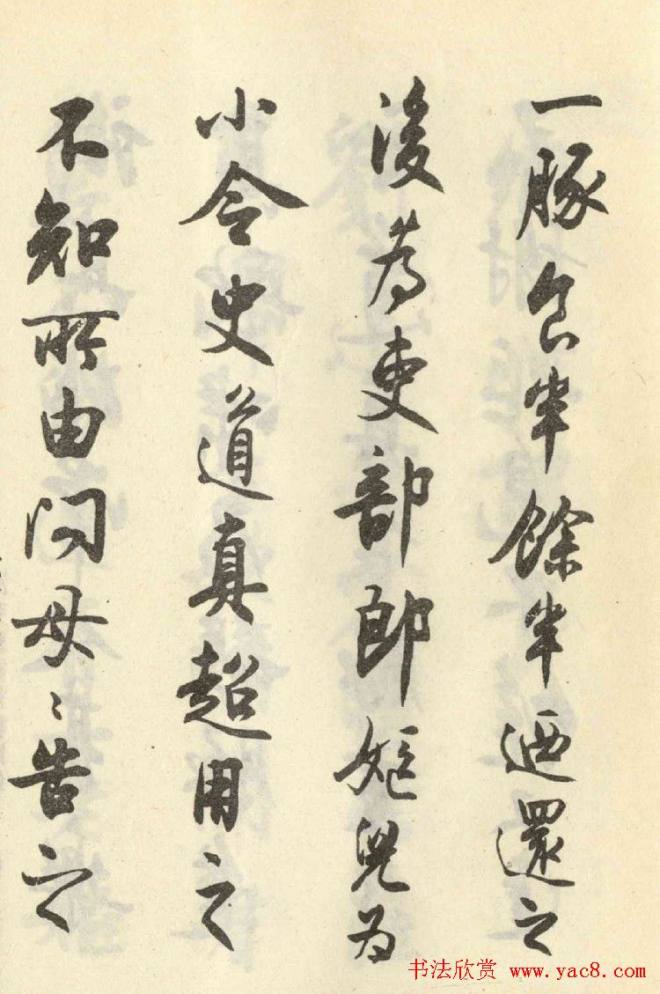 一豚食半餘半迺還之
後為吏部郎嫗兒為
小令史道真超用之
不知所由问母〻告之
书法欣赏 www.yac8.com